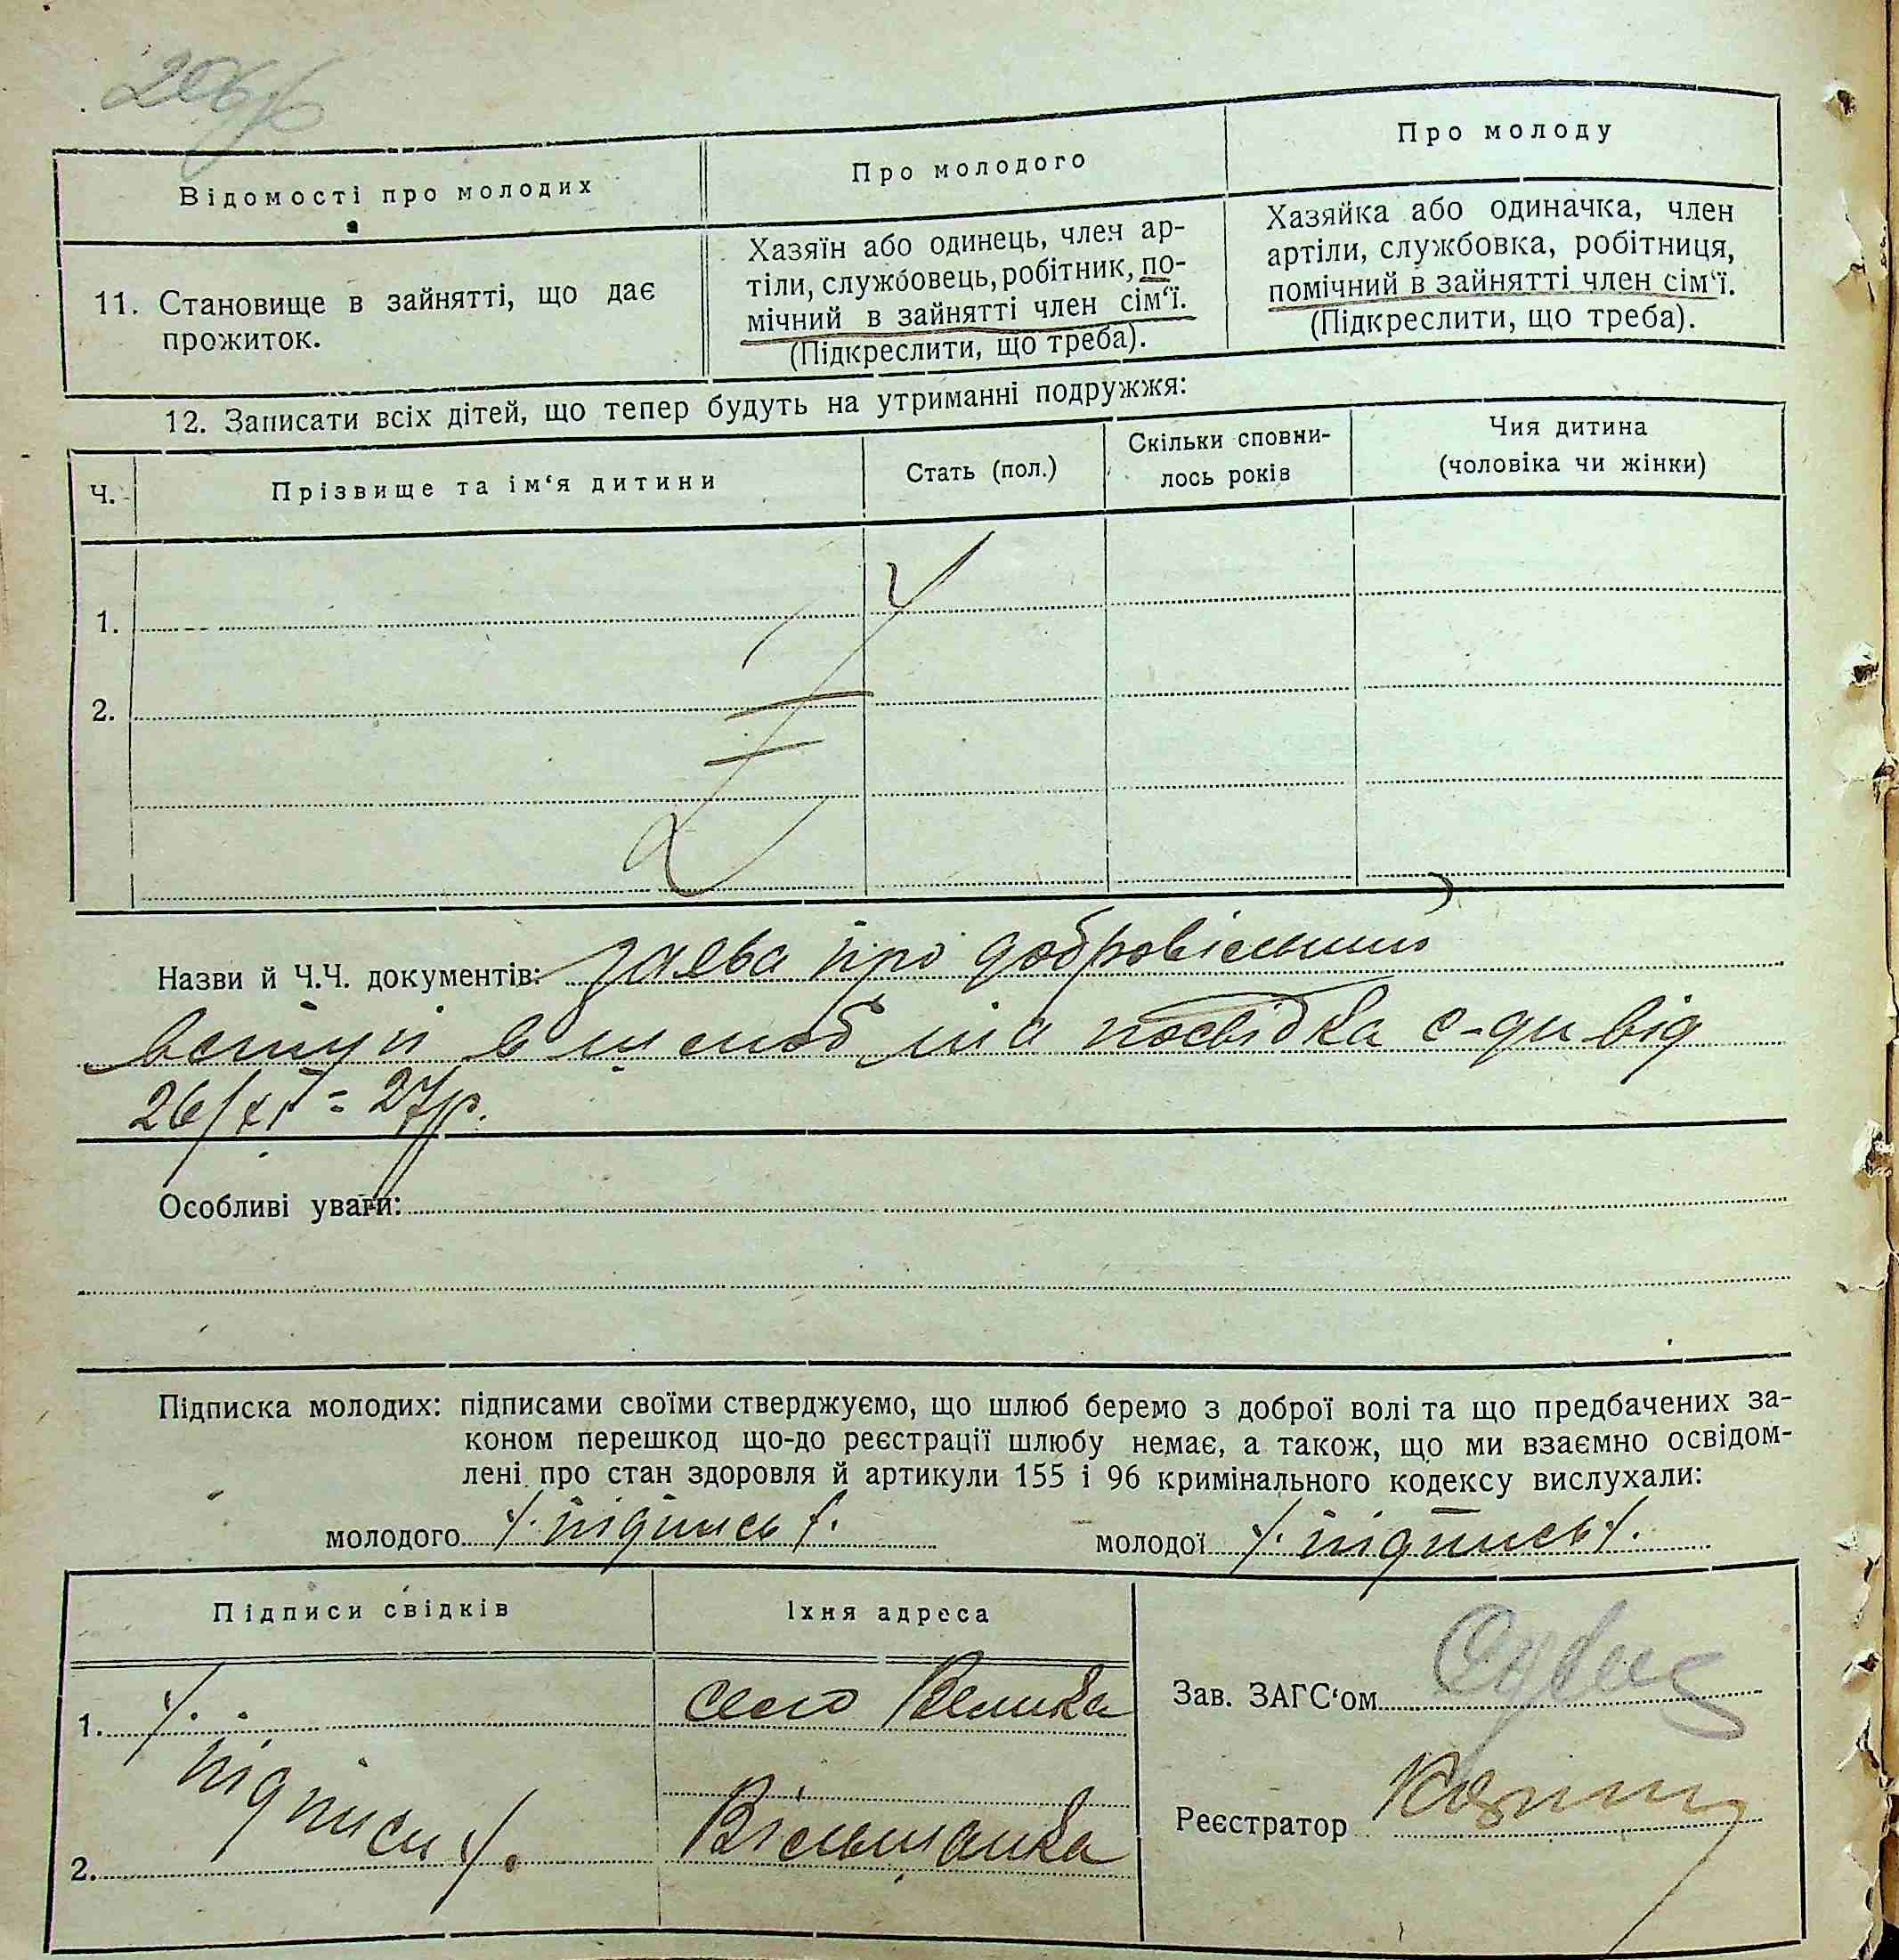 Відомості про молодих
Про молодого
Про молоду
11. Становище в зайнятті, що дає
прожиток.
Хазяїн або одинець, член ар-
тіли, службовець, робітник, по-
мічний в зайнятті член сім‘ї.
(Підкреслити, що треба).
Хазяйка або одиначка, член
артіли, службовка, робітниця,
помічний в зайнятті член сім‘ї.
(Підкреслити, що треба).
12. Записати всіх дітей, що тепер будуть на утриманні подружжя:
Ч.
Прізвище та ім‘я дитини
Стать (пол.)
Скільки сповни-
лось років
Чия дитина
(чоловіка чи жінки)
1.
2.
Назви й Ч.Ч. документів: заява про добровільний
вступ в шлюб та посвідка с-ди від
26/XI = 27р.
Особливі уваги:
Підписка молодих: підписами своїми стверджуємо, що шлюб беремо з доброї волі та що предбачених за-
коном перешкод що-до реєстрації шлюбу немає, а також, що ми взаємно освідом-
лені про стан здоровля й артикули 155 і 96 кримінального кодексу вислухали:
молодого /. підпись /. молодої /. підпись /.
Підписи свідків
Їхня адреса
1. /. село Велика
підписи /.
2. Вільшанка
Зав. ЗАГС‘ом
Реєстратор